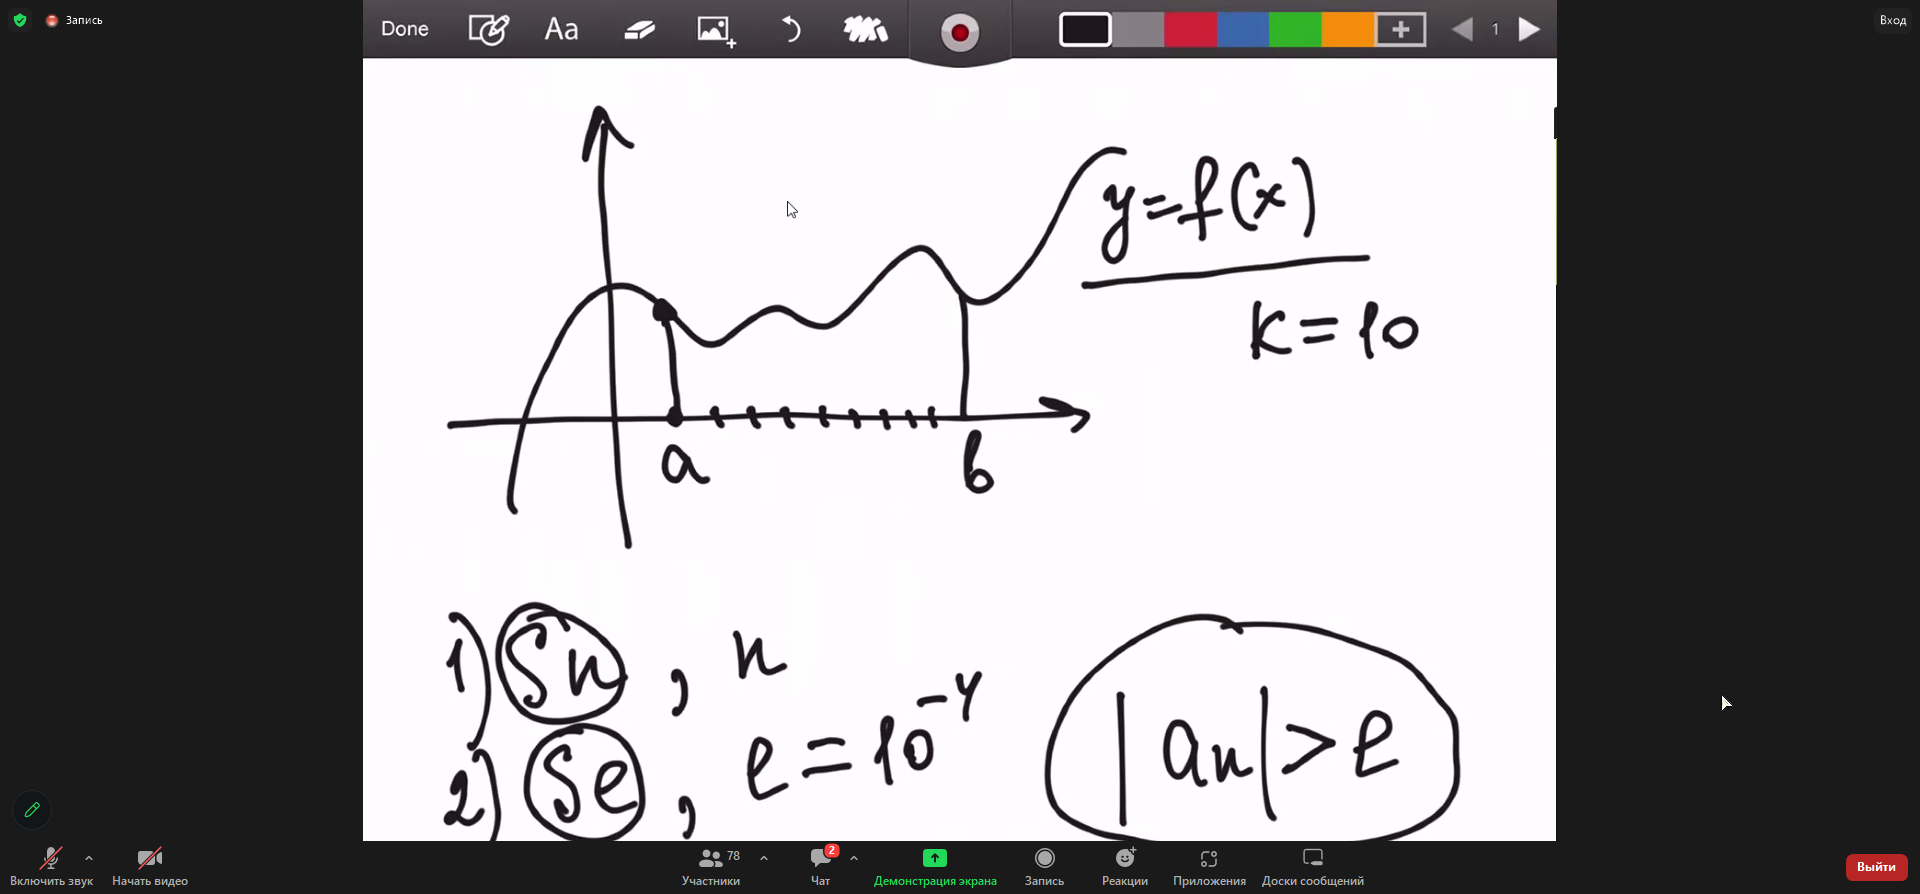 Запись
Вход
Done
Aa
1
y=f(x)
k=10
a
b
1) Sn, n
2) Se, e=10⁻⁴
|an|>e
Включить звук
Начать видео
78
Участники
2
Чат
Демонстрация экрана
Запись
Реакции
Приложения
Доски сообщений
Выйти